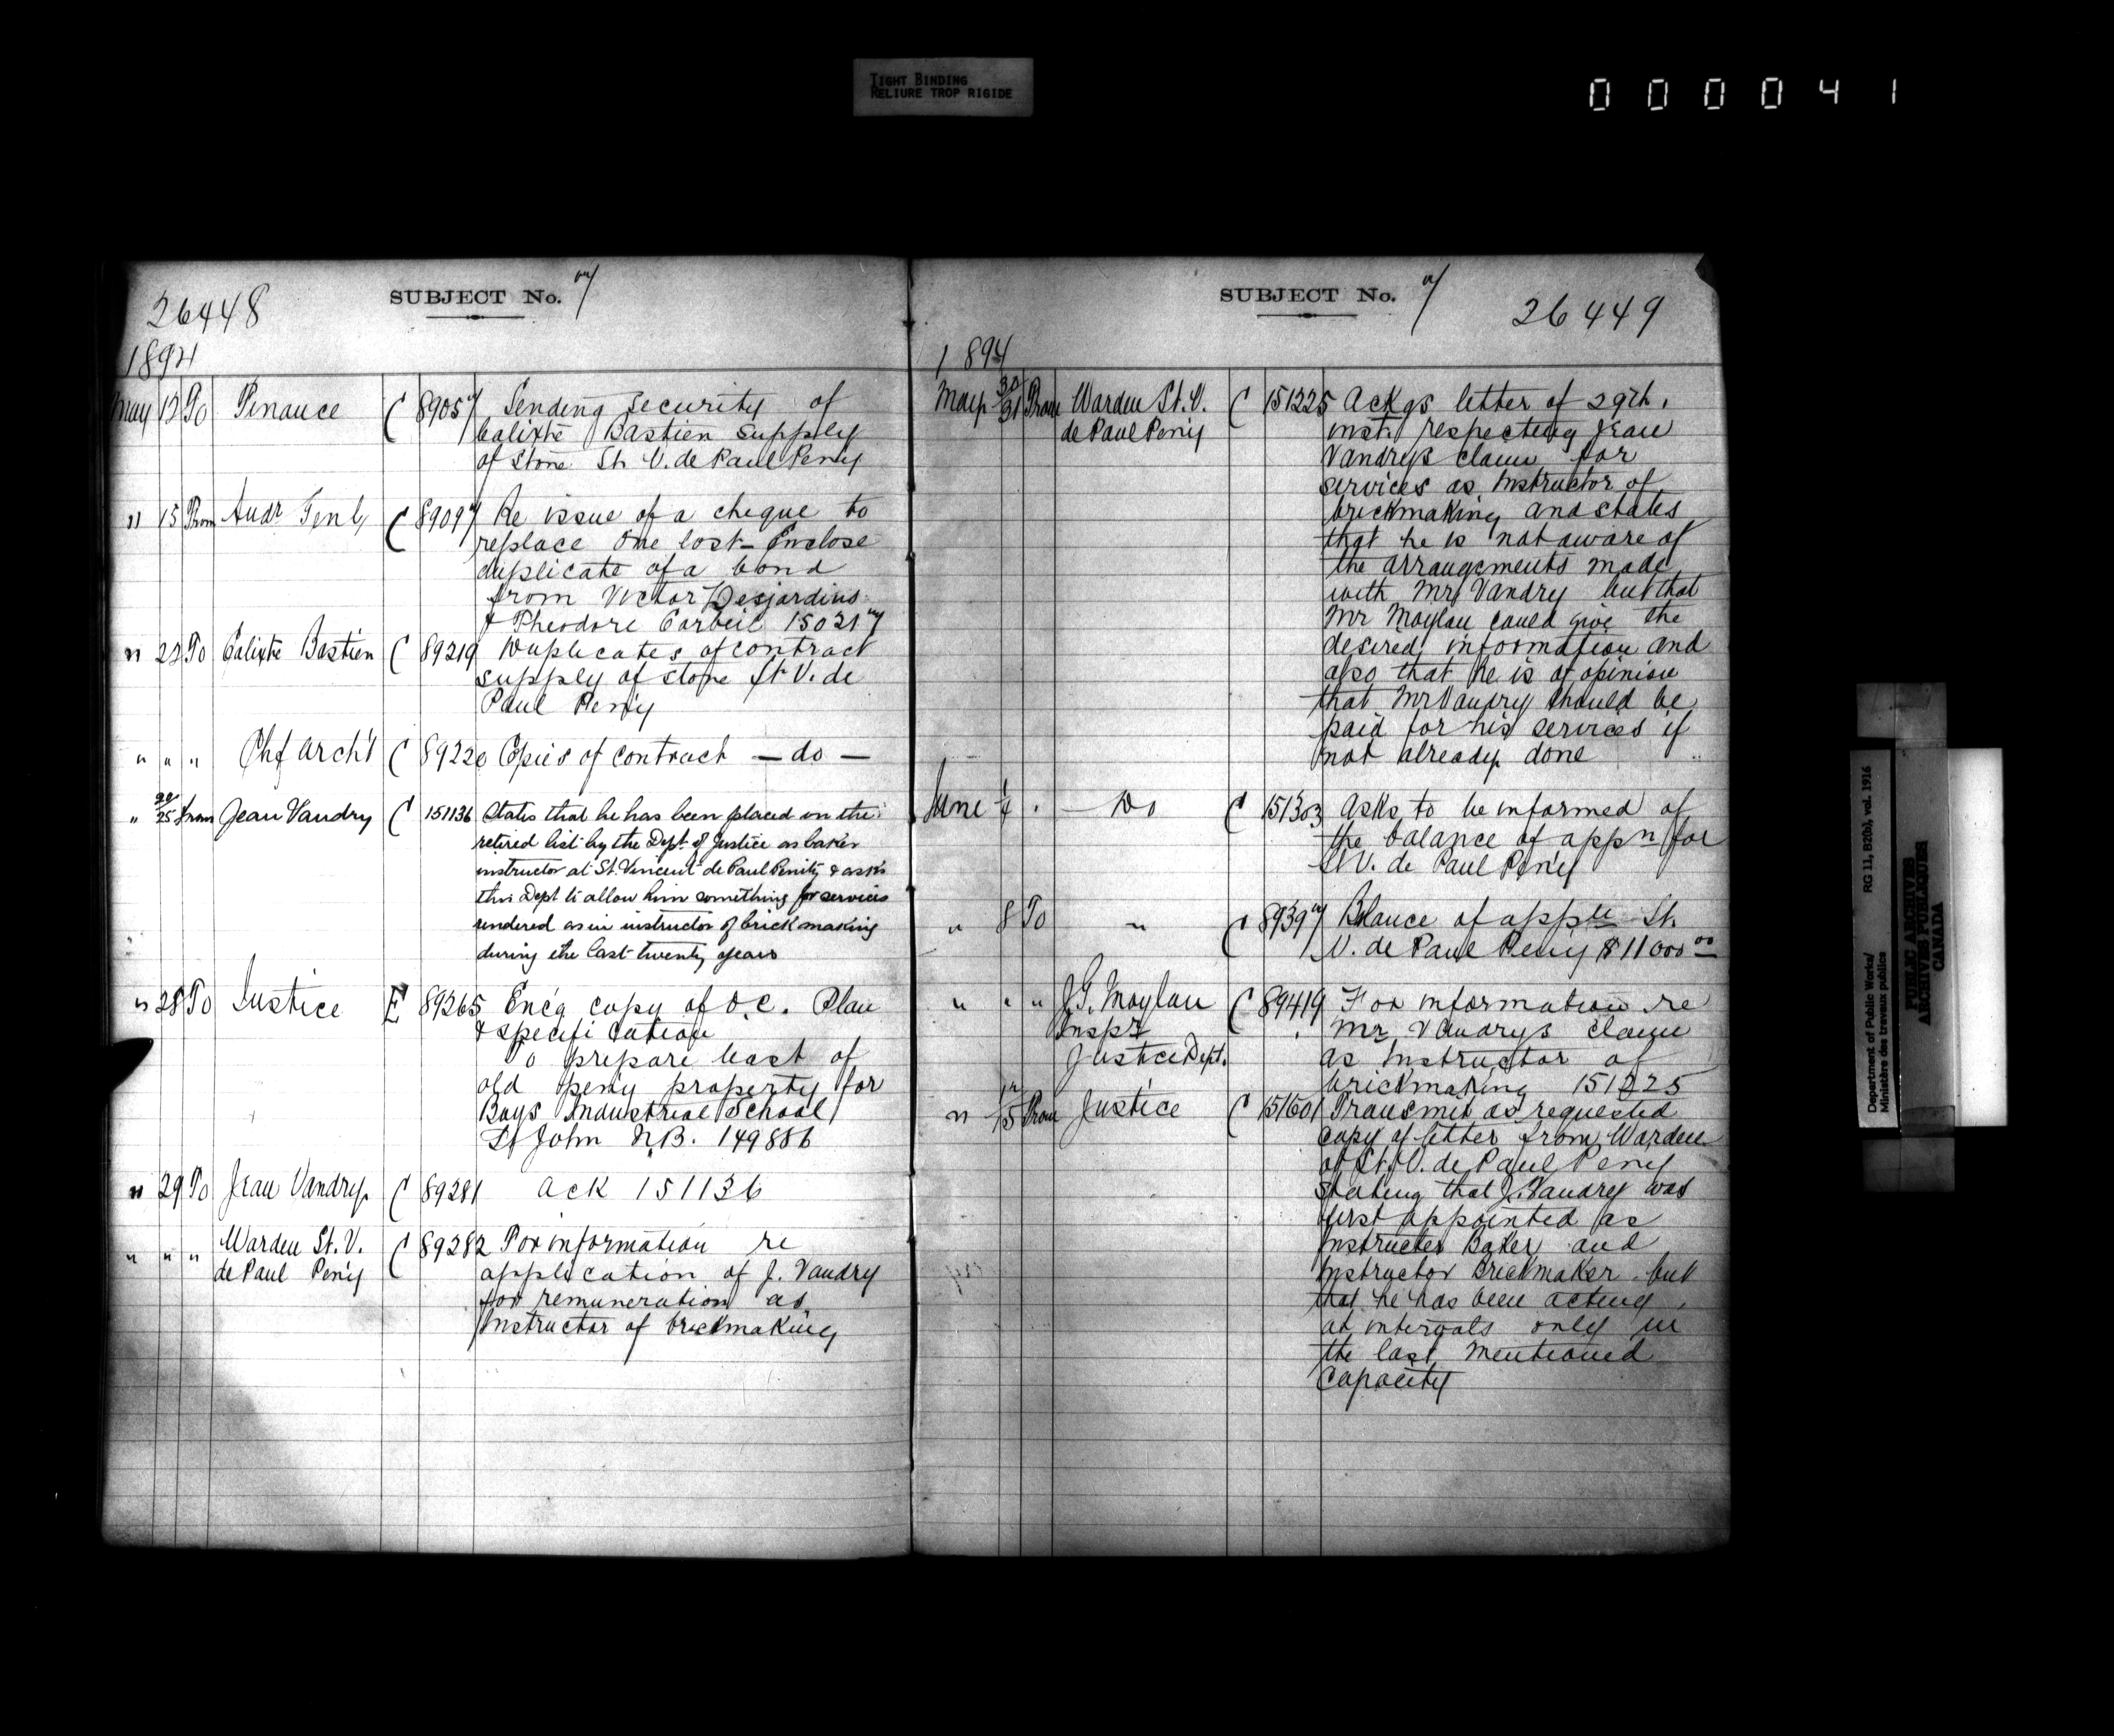 TIGHT BINDING
RELIURE TROP RIGIDE
000041
SUBJECT No. 7
26448
1894
May 12 To Finance C 89057 Sending security of
Calixte Bastien supply
of stone St. V. de Paul Peny
" 15 From Audr Genl C 89097 Re issue of a cheque to
replace one lost - Enclose
duplicate of a bond
from Victor Desjardins
& Theodore Corbeil 150217
" 22 To Calixte Bastien C 89219 Duplicates of contract
supply of stone St V. de
Paul Peny
" " " Chf Archt C 89220 Copies of contract — do —
" 25 From Jean Vandry C 151136 States that he has been placed on the
retired list by the Dept of Justice as baker
instructor at St. Vincent de Paul Penity & asks
this Dept to allow him something for services
rendered as in instructor of brickmaking
during the last twenty years
" 28 To Justice E 89265 Enc'g copy of O.C. Plan
& specification
To prepare least of
old peny property for
Boys Industrial School
St John N.B. 149886
" 29 To Jean Vandry C 89281 Ack 151136
" " " Warden St. V.
de Paul Peny C 89282 For information re
application of J. Vandry
for remuneration as
Instructor of brickmaking
SUBJECT No. 7
26449
1894
May 30/31 From Warden St. V.
de Paul Peny C 151225 Ackgs letter of 29th.
inst. respecting Jean
Vandrys claim for
services as Instructor of
brickmaking and states
that he is not aware of
the arrangements made
with Mr Vandry but that
Mr Moylan could give the
desired information and
also that he is of opinion
that Mr Vandry should be
paid for his services if
not already done
June 1/4 " — Do C 151303 Asks to be informed of
the balance of appn for
St V. de Paul Peny
" 8 To " C 89397 Balance of appn St.
V. de Paul Peny $11000 00
" " " J.G. Moylan
Inspr
Justice Dept. C 89419 For information re
Mr Vandrys claim
as Instructor of
brickmaking 151225
" 15 From Justice C 151601 Transmit as requested
copy of letter from Warden
of St. V. de Paul Peny
stating that J. Vandry was
first appointed as
Instructor Baker and
Instructor Brickmaker but
that he has been acting
at intervals only in
the last mentioned
capacity
Department of Public Works/ RG 11, B2(b), vol. 1916
Ministère des travaux publics
PUBLIC ARCHIVES
ARCHIVES PUBLIQUES
CANADA